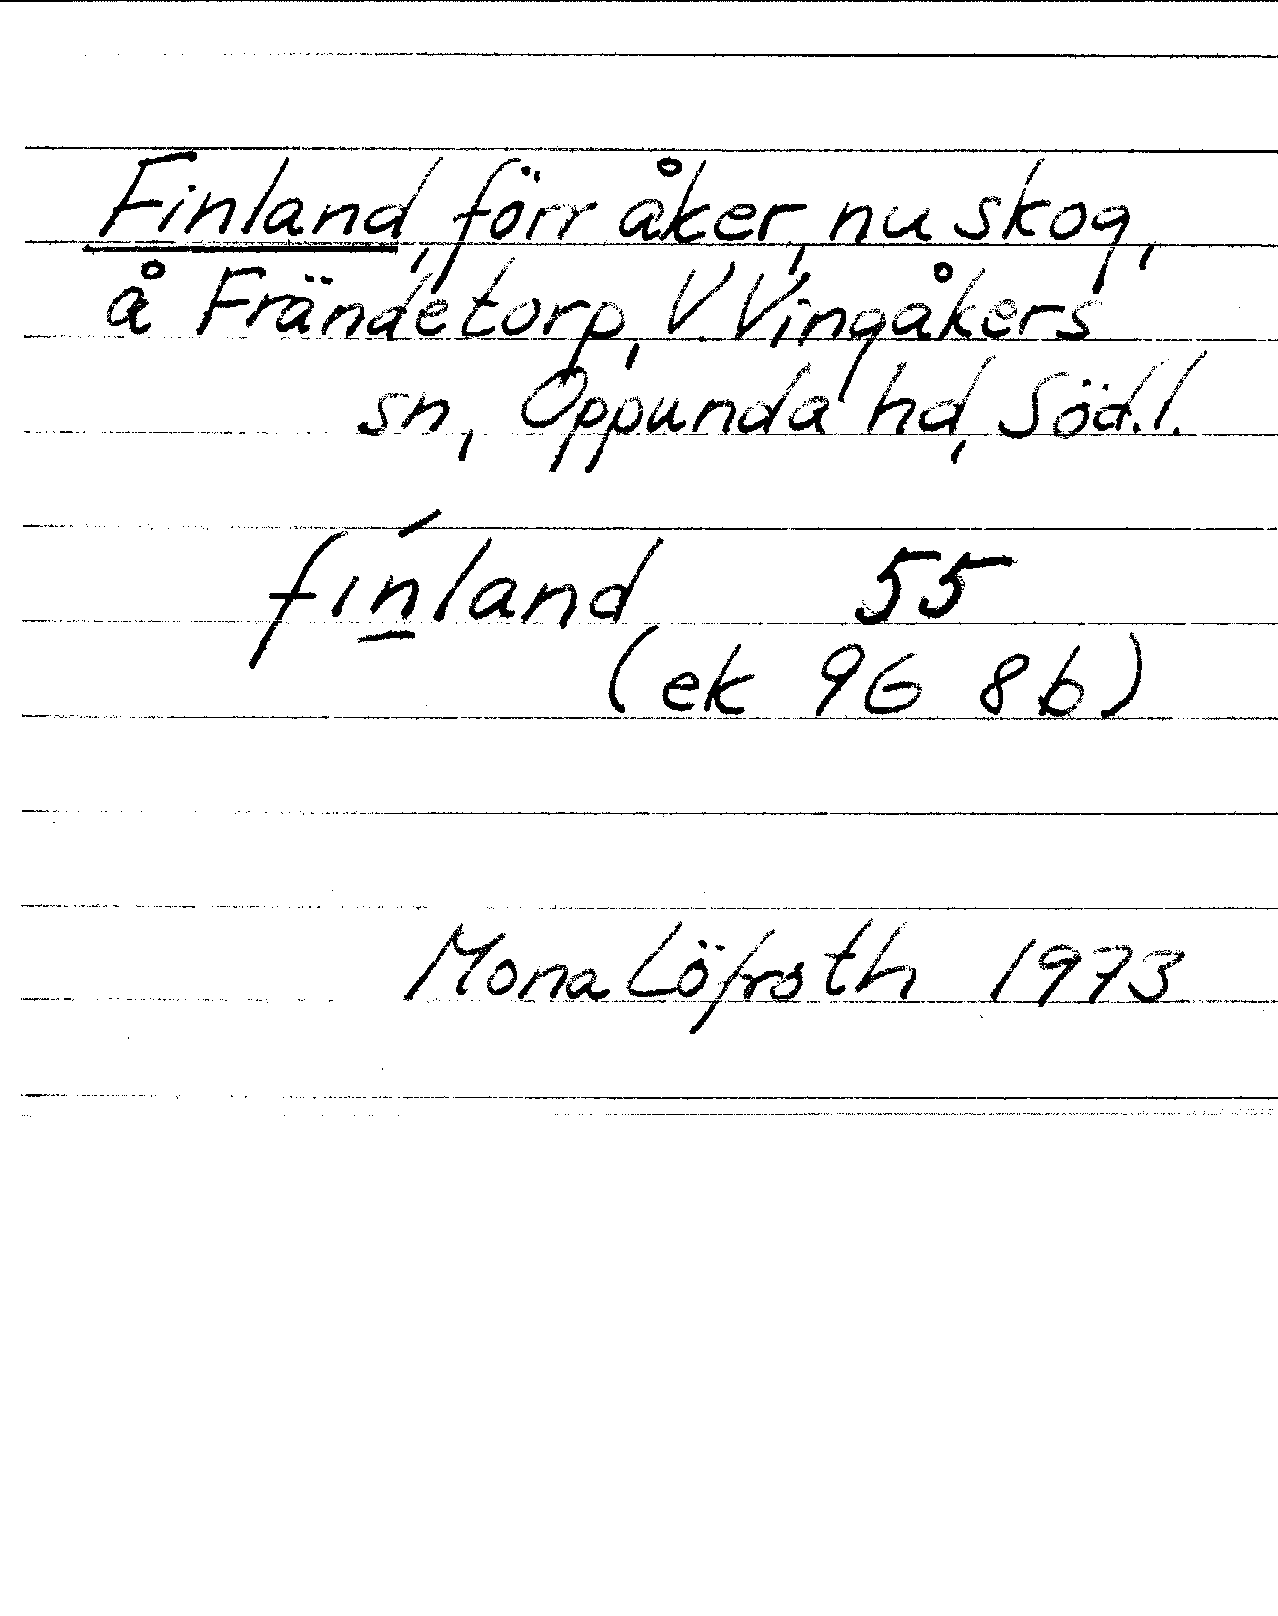 Finland, förr åker, nu skog,
å Frändetorp, V Vingåkers
sn, Oppunda hd, Söd.l.
fı́n̲land 55
(ek 9G 8b)
Mona Löfroth 1973